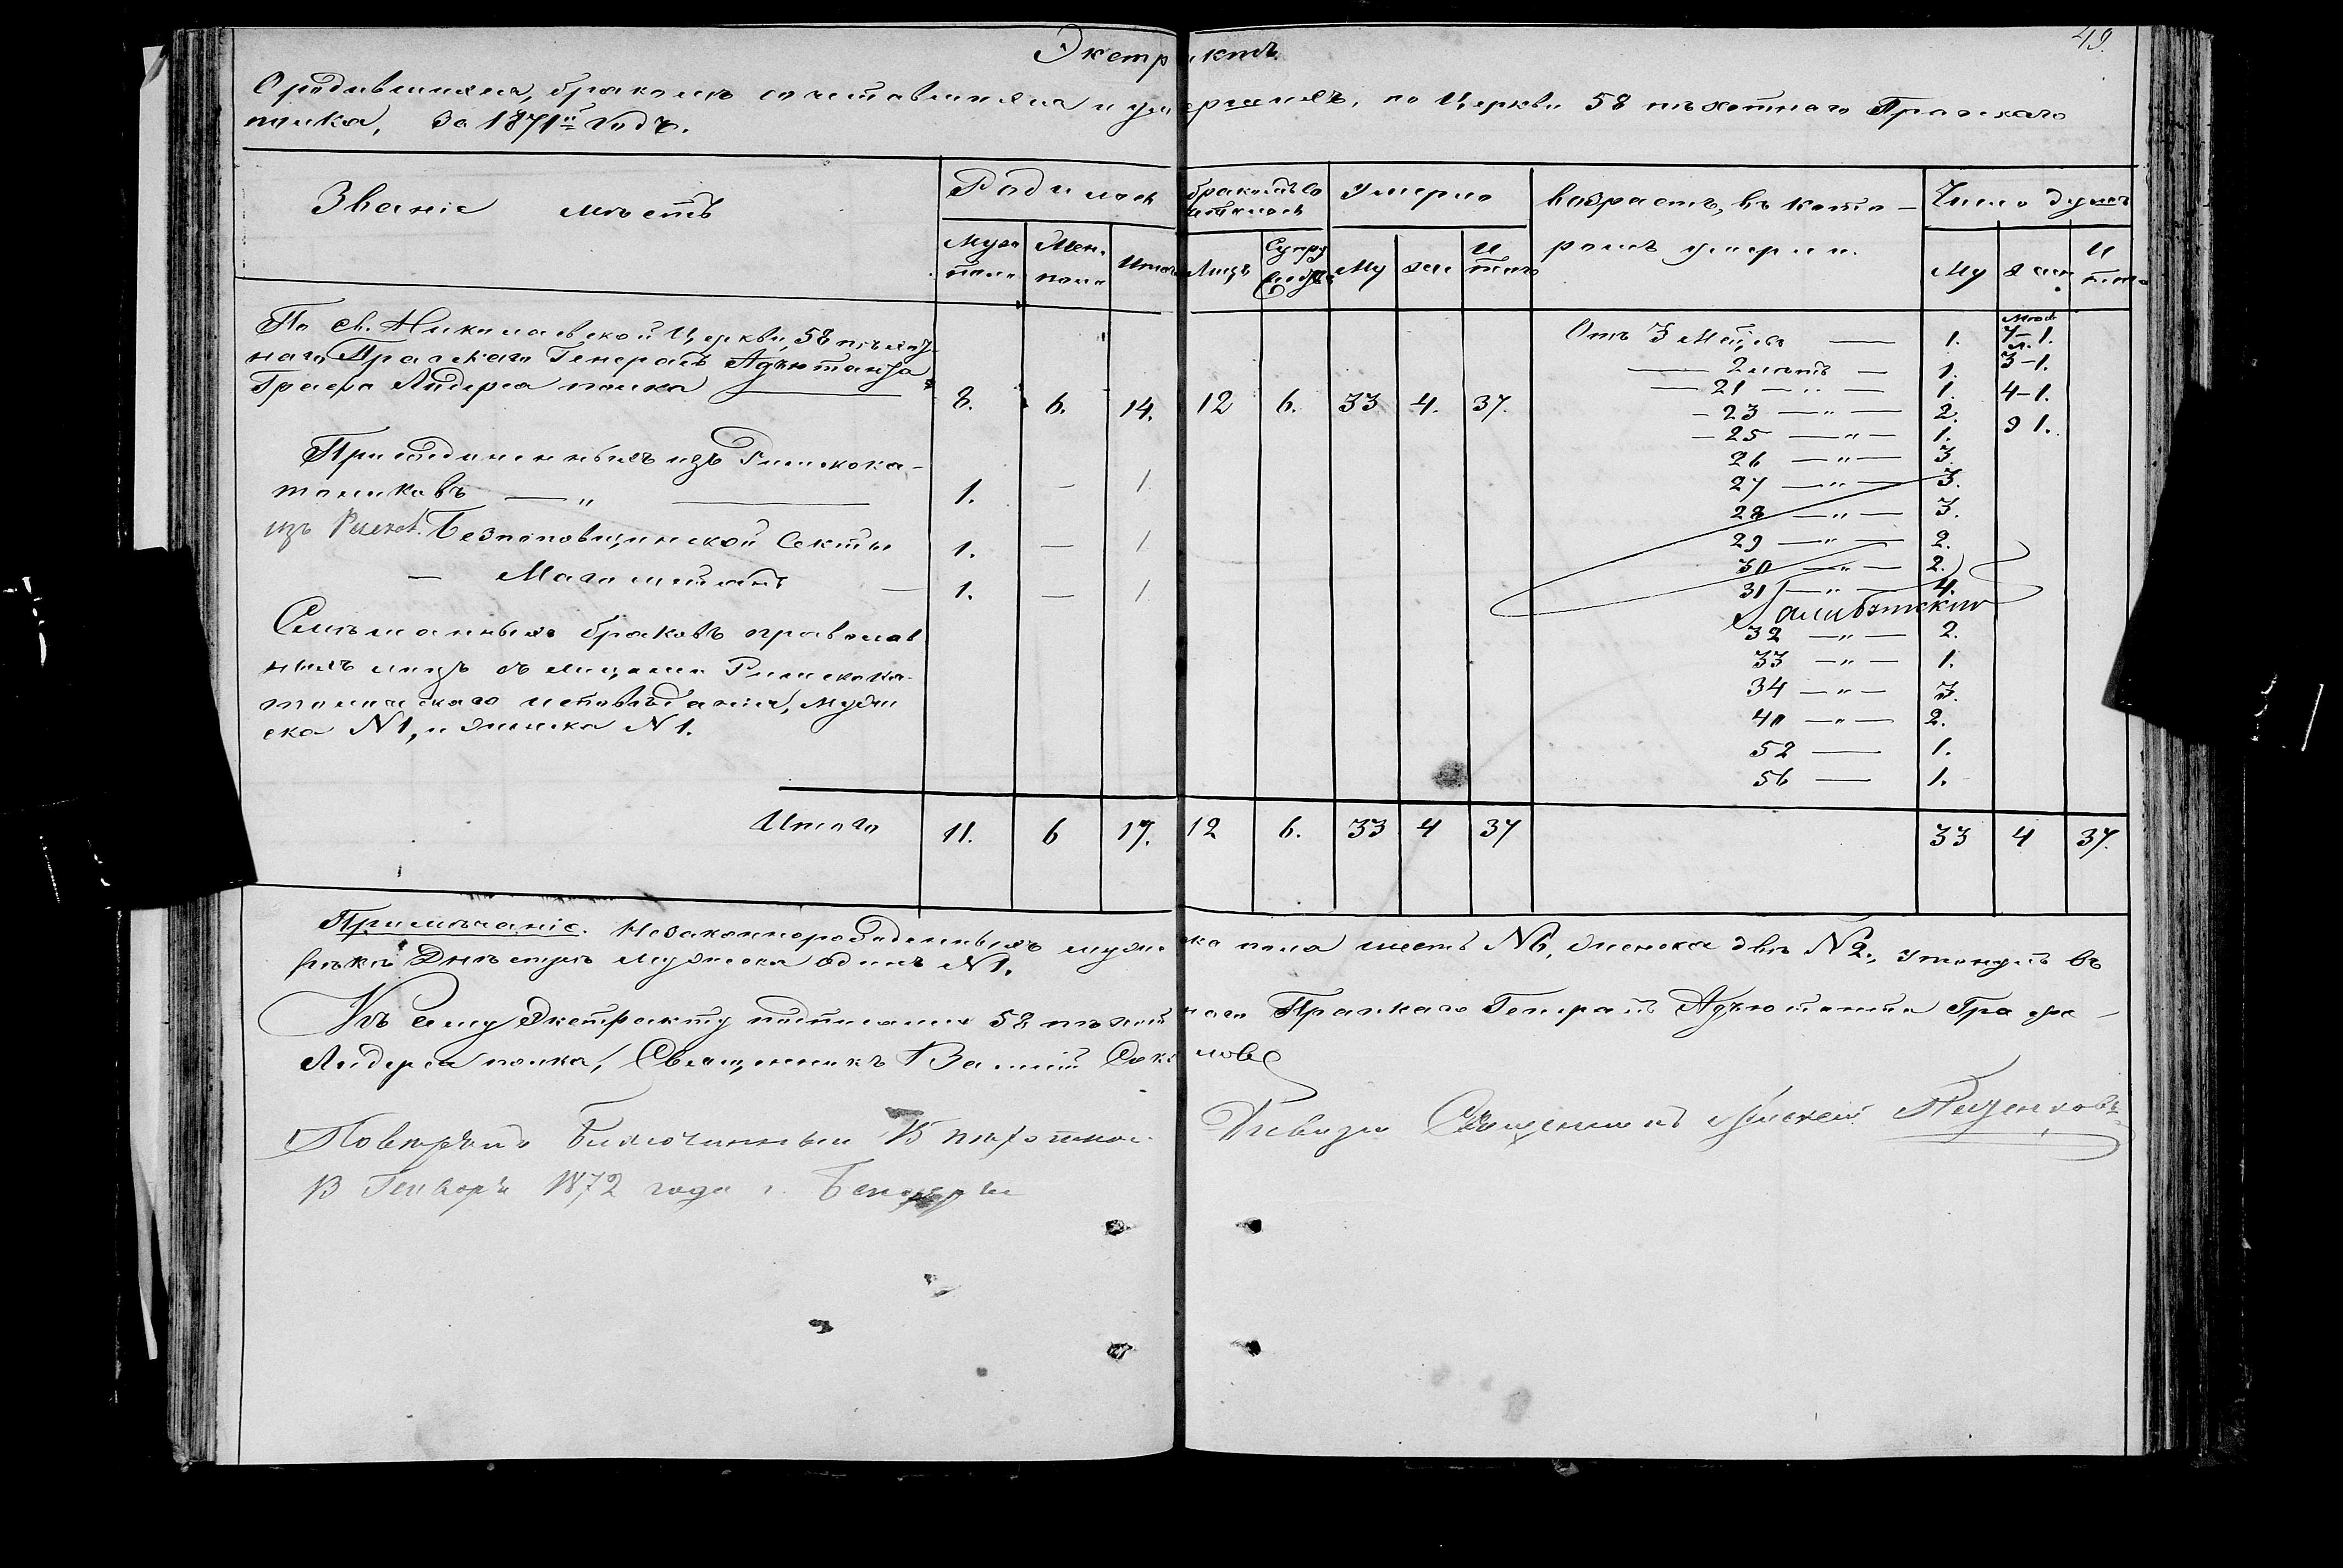 49.
Экстрактъ
О родившихся, бракомъ сочетавшихся и умершихъ, по Церкви 58 пѣхотнаго Прагскаго
полка, За 1871й Годъ.
Званіе мѣстъ
Родилось
бракомъ со
четалось
Умерло
возрастъ, въ кото-
ромъ умерли.
Число душъ
Муж. пола
Жен. пола
Итого
Лицъ
Супру
Му
жен
И того
Му
жен
И того
По Св. Николаевской Церкви, 58 пѣхот
наго Прагскаго Генералъ Адъютанта
Графа Лидерса полка
8. 6. 14. 12 6. 33 4. 37.
Присоединенныхъ изъ Римскока-
толиковъ — „ — 1. — 1
изъ Раскол. Безпоповщинской Секты 1. — 1
— Магометанъ — 1. — 1
Смѣшанныхъ браковъ православ
ныхъ лицъ съ лицами Римскока-
толическаго исповѣданія, мужи
ска N 1, и женска N 1.
Отъ 3 Мѣсяц. — 1. 7-1.
— 2 лѣтъ — 1. 3-1.
— 21 — „ — 1. 4-1.
- 23 — „ — 2. 9 1.
- 25 — „ — 1.
26 — „ — 3
27 — „ — 3.
28 — „ — 3.
29 — „ — 2.
30 — „ — 2.
31 — „ — 4.
32 — „ — 2.
33 — „ — 1.
34 — „ — 3.
40 — „ — 2.
52 — 1.
56 — 1.
Итого 11. 6 17. 12 6. 33 4 37 33 4 37.
Примѣчаніе. Незаконнорожденныхъ мужеска пола шесть N 6, женска двѣ N 2., утонулъ въ
рѣкѣ Днѣстрѣ мужеска одинъ N 1.
Къ сему Экстракту подписался 58 пѣхотнаго Прагскаго Генералъ Адъютанта Графа —
Лидерса полка, Священникъ Василій Соколовъ
Повѣрялъ Благочинный 15 пѣхотной Дивизіи Священникъ Алексей
13 Генваря 1872 года г. Бендеры